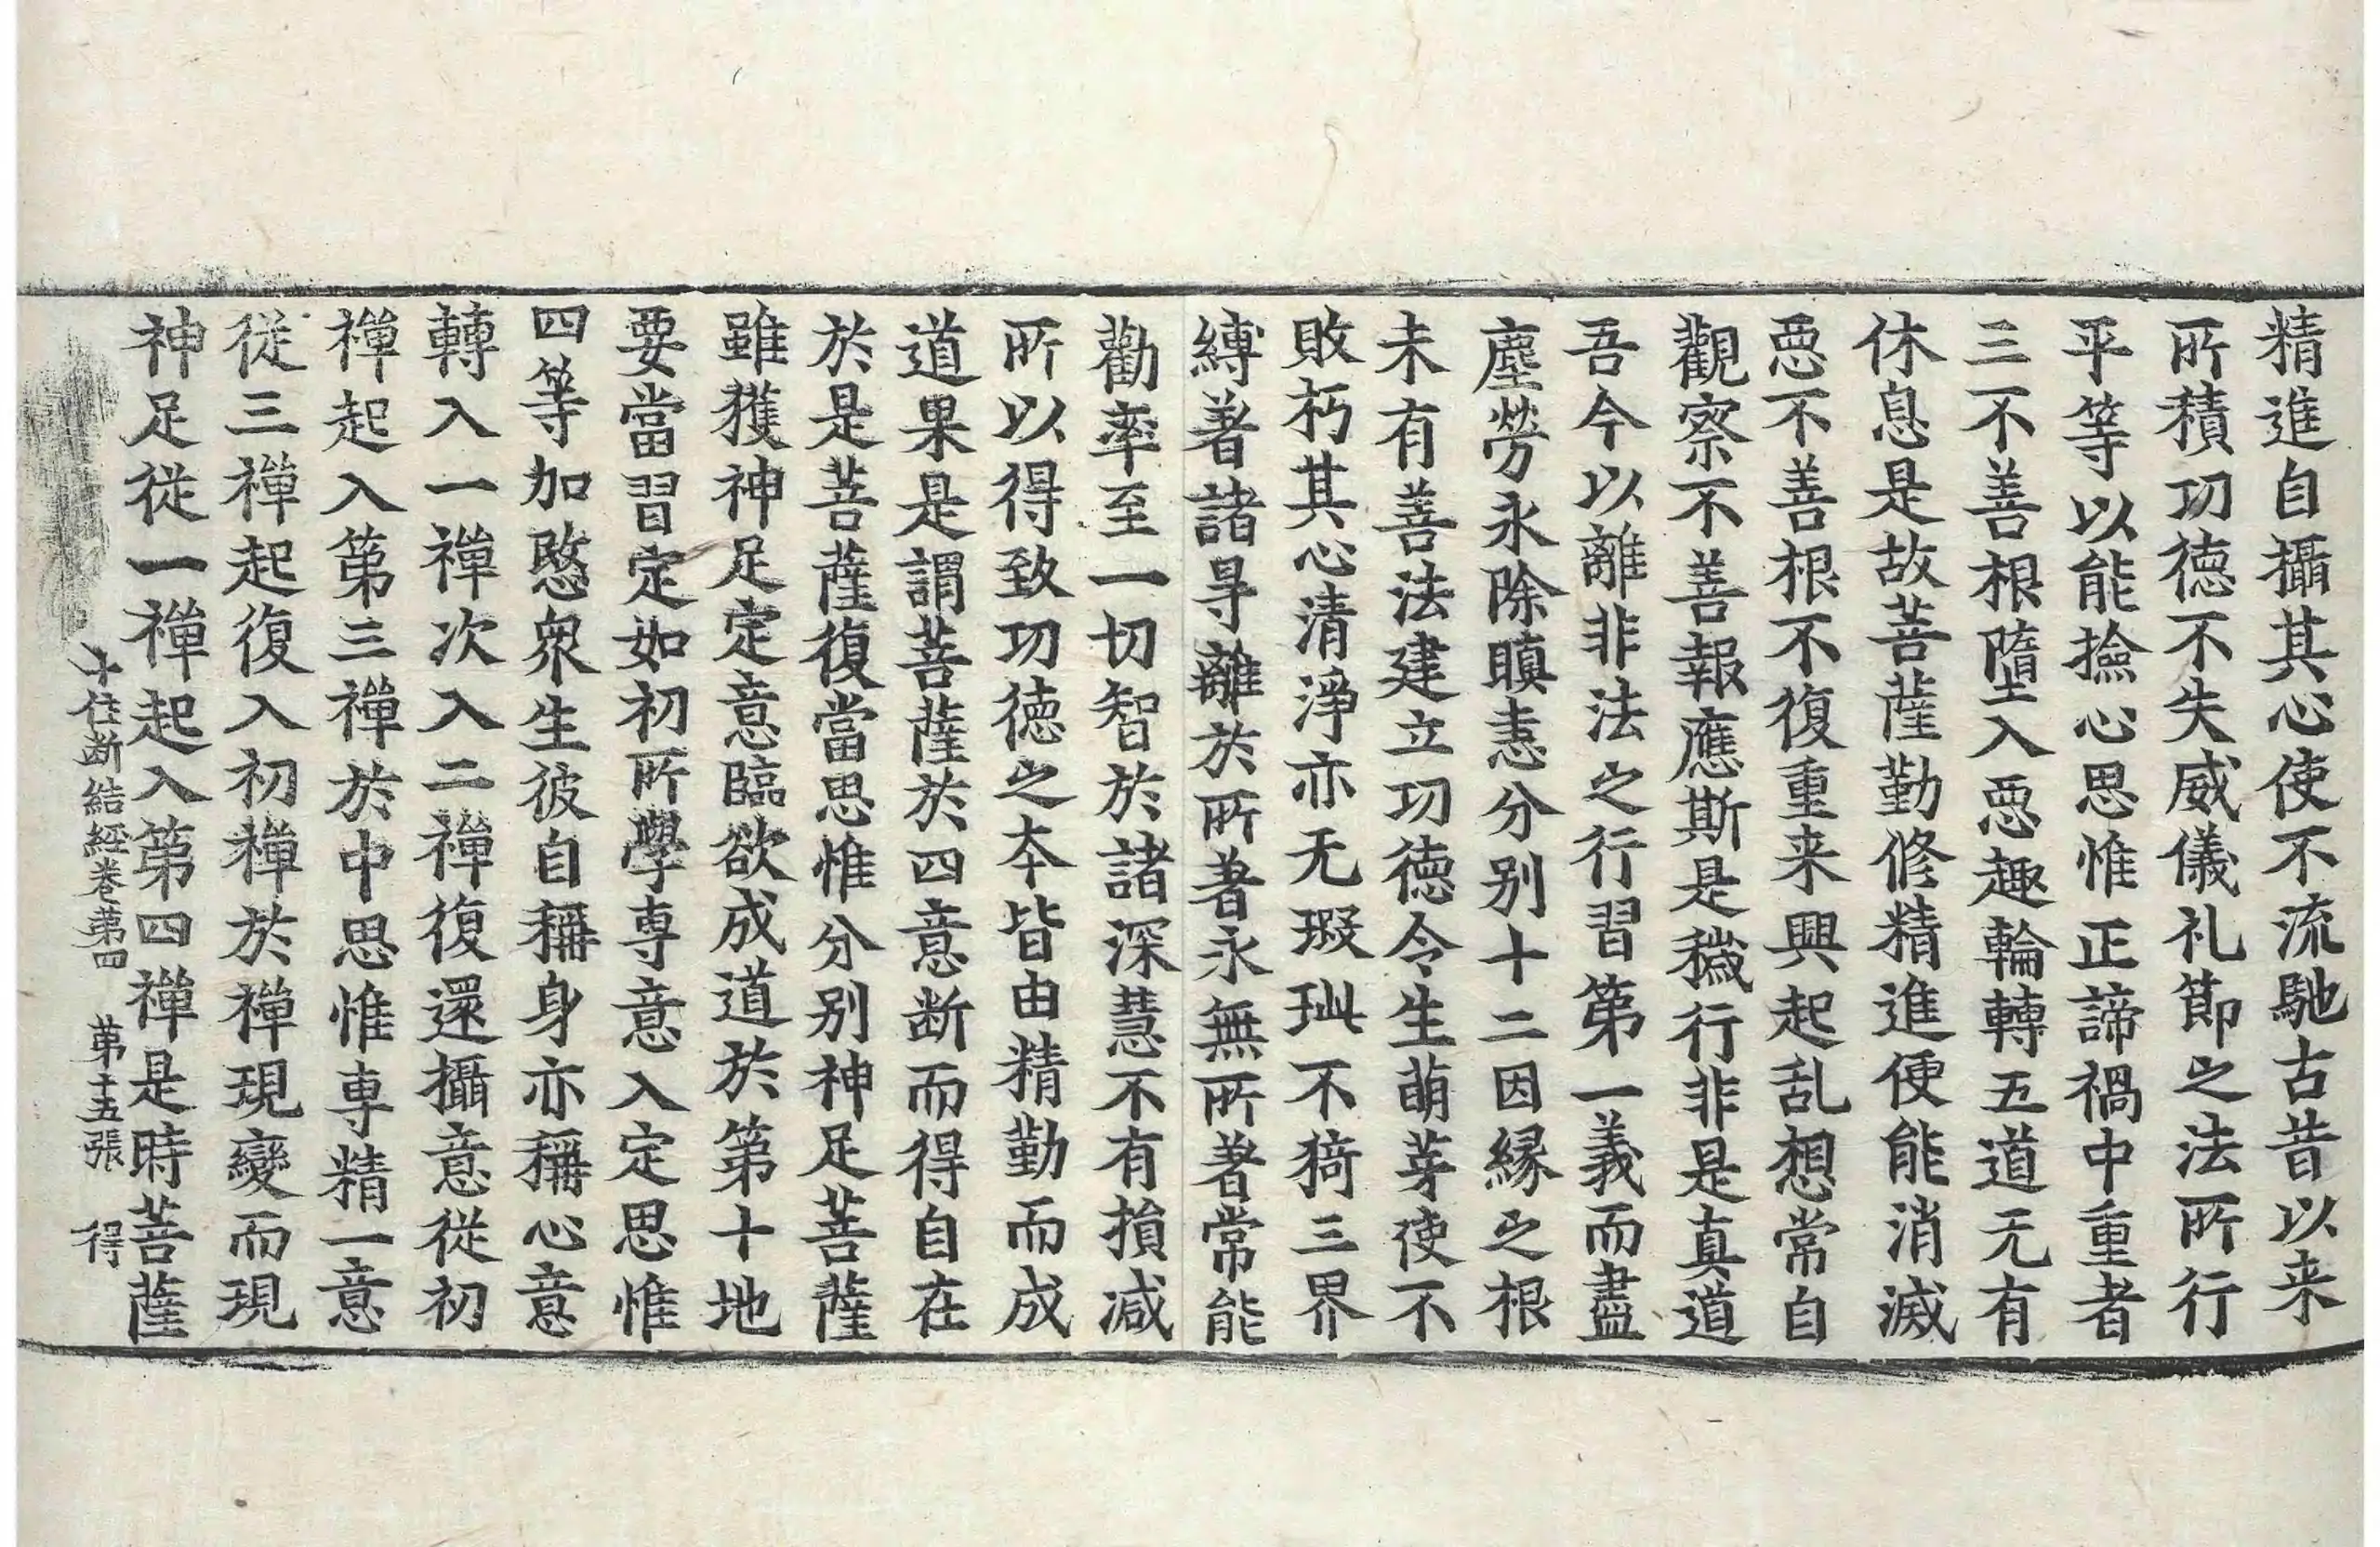 精進自攝其心使不流馳古昔以来
所積功德不失威儀礼節之法所行
平等以能撿心思惟正諦禍中重者
三不善根墮入惡趣輪轉五道无有
休息是故菩薩勤修精進便能消滅
惡不善根不復重来興起乱想常自
觀察不善報應斯是穢行非是真道
吾今以離非法之行習第一義而盡
塵勞永除瞋恚分别十二因縁之根
未有善法建立功德令生萌芽使不
敗朽其心清淨亦无瑕玼不猗三界
縛著諸㝵離於所著永無所著常能
勸率至一切智於諸深慧不有損減
所以得致功德之本皆由精勤而成
道果是謂菩薩於四意断而得自在
於是菩薩復當思惟分别神足菩薩
雖獲神足定意臨欲成道於第十地
要當習定如初所學専意入定思惟
四等加愍衆生彼自稱身亦稱心意
轉入一禪次入二禪復還攝意從初
禪起入第三禪於中思惟専精一意
從三禪起復入初禪於禪現變而現
神足從一禪起入第四禪是時菩薩
十住断結經卷第四 第十五張 得